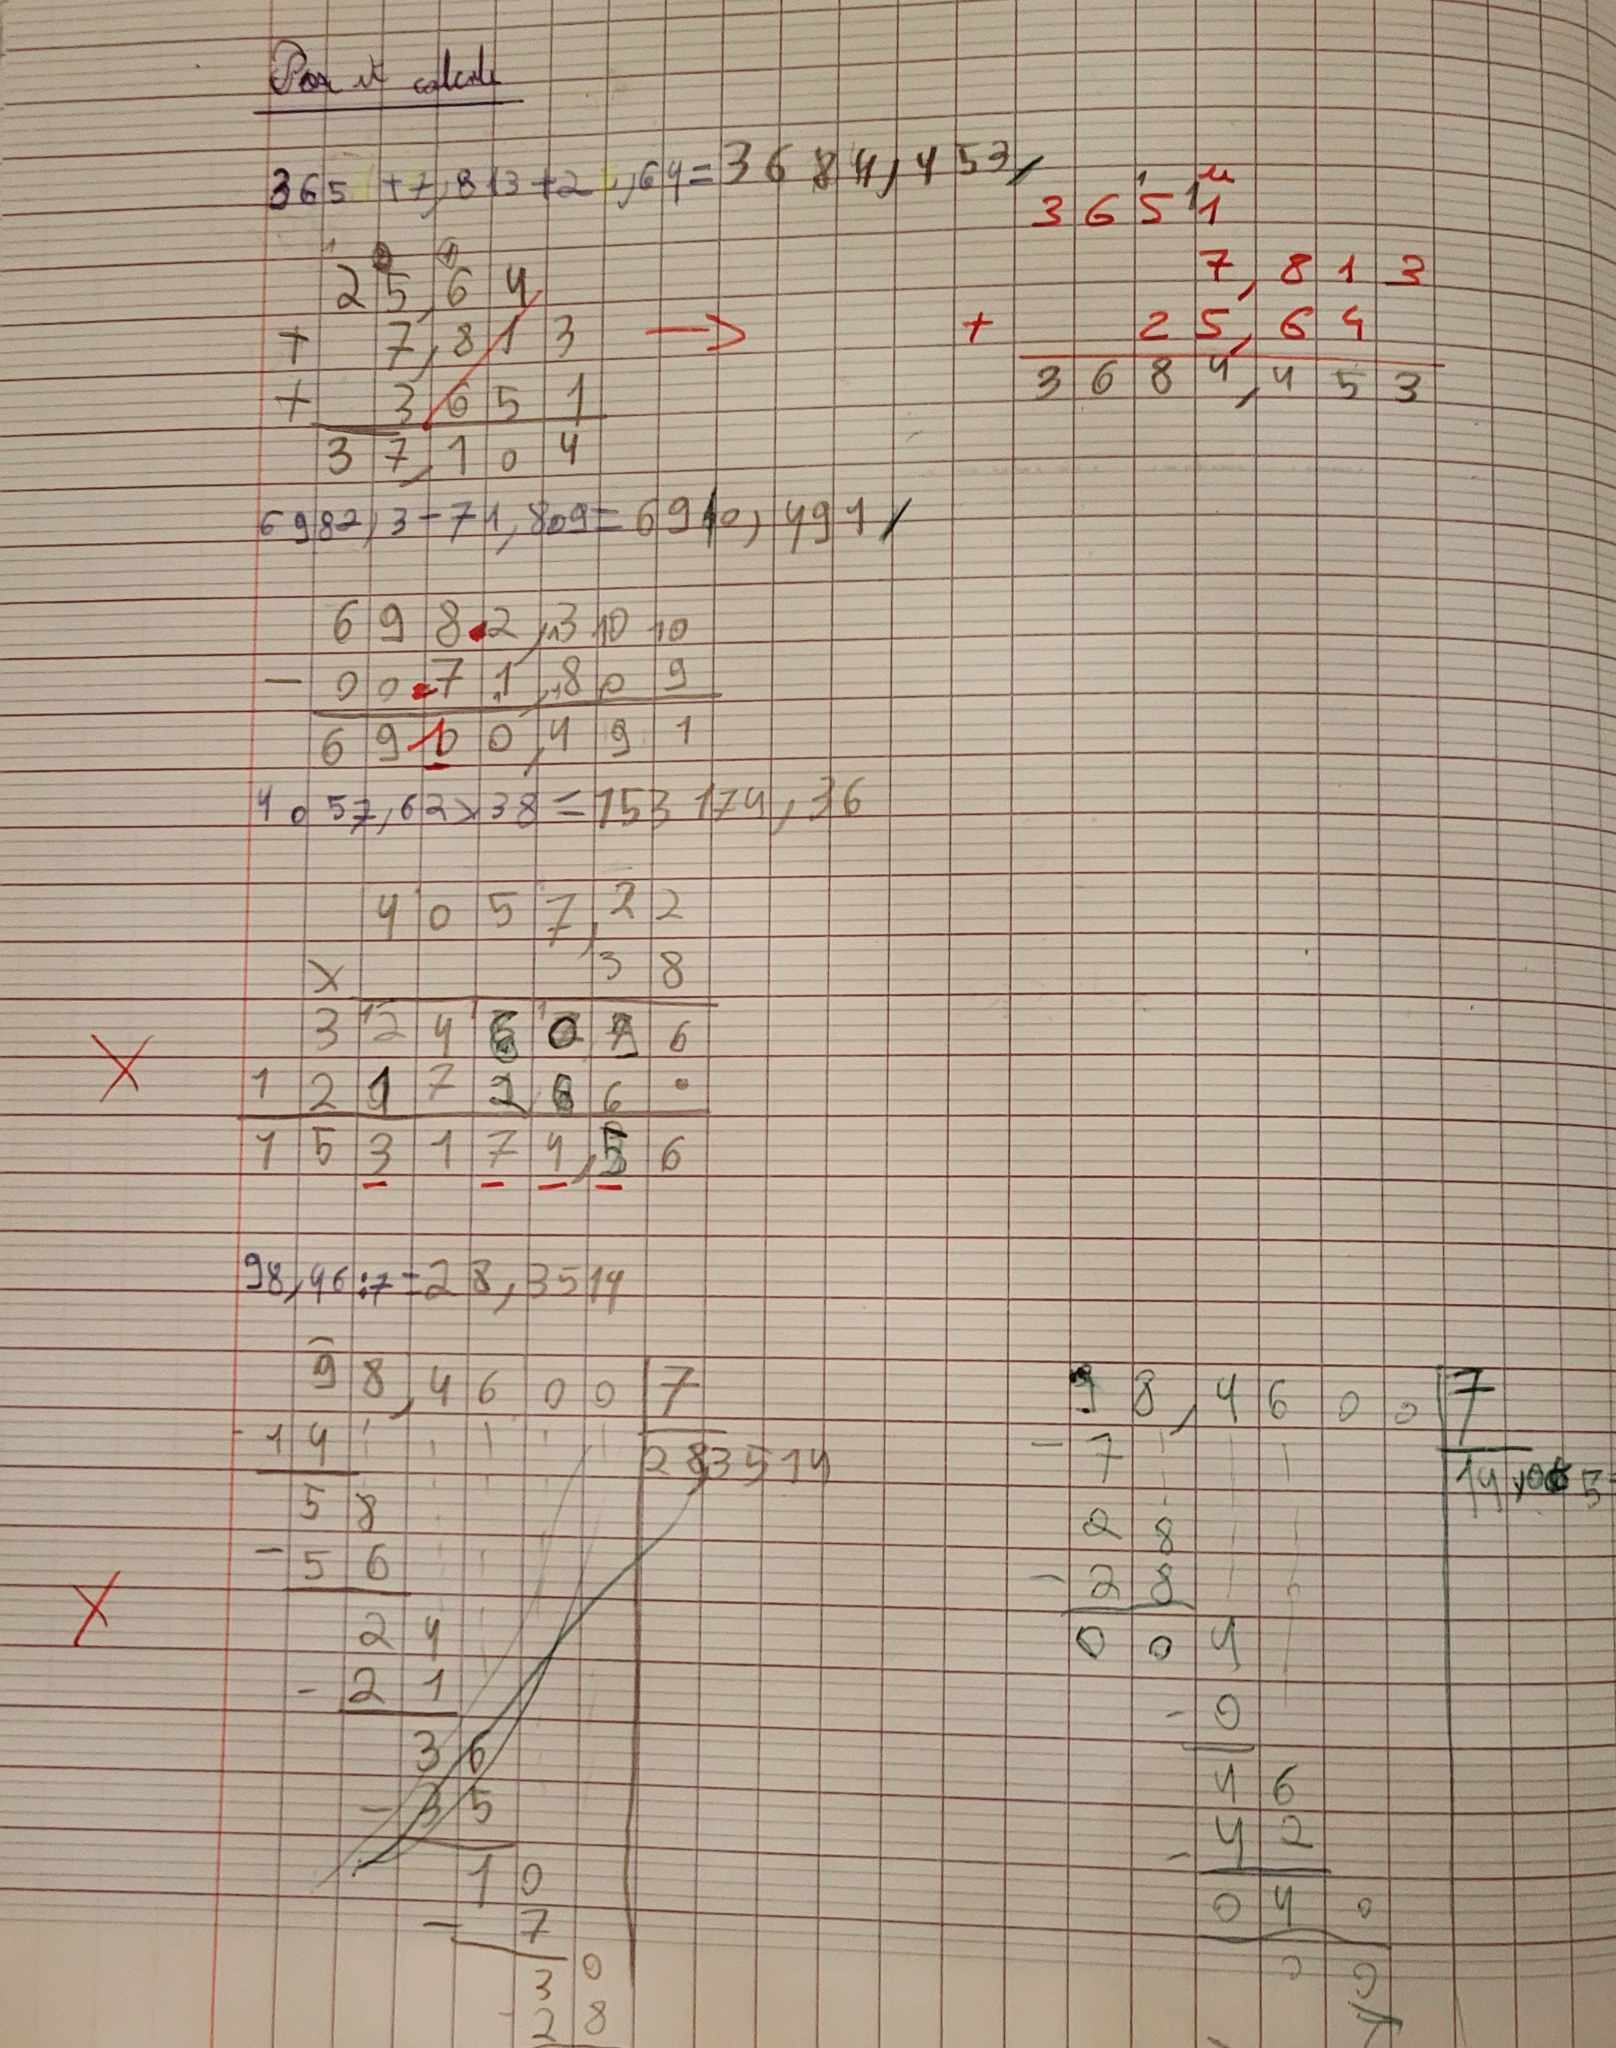 Pose et calcule
365 +7,813+2 ,64=3684,453
25,64
+ 7,813
+ 3651
37,104
→
3651
7,813
+ 25,64
3684,453
6982,3-71,809=6910,491
6982,31010
- 0071,809
6910,491
4057,62×38=153174,36
4057,22
× 38
X
324 0 6
1217 6•
153174,56
98,46:7=28,3514
98,4600 7
-14
283514
58
-56
X
24
-21
36
-35
10
-7
30
-28
98,4600 7
-7
14,0 5
28
-28
004
-0
46
-42
040